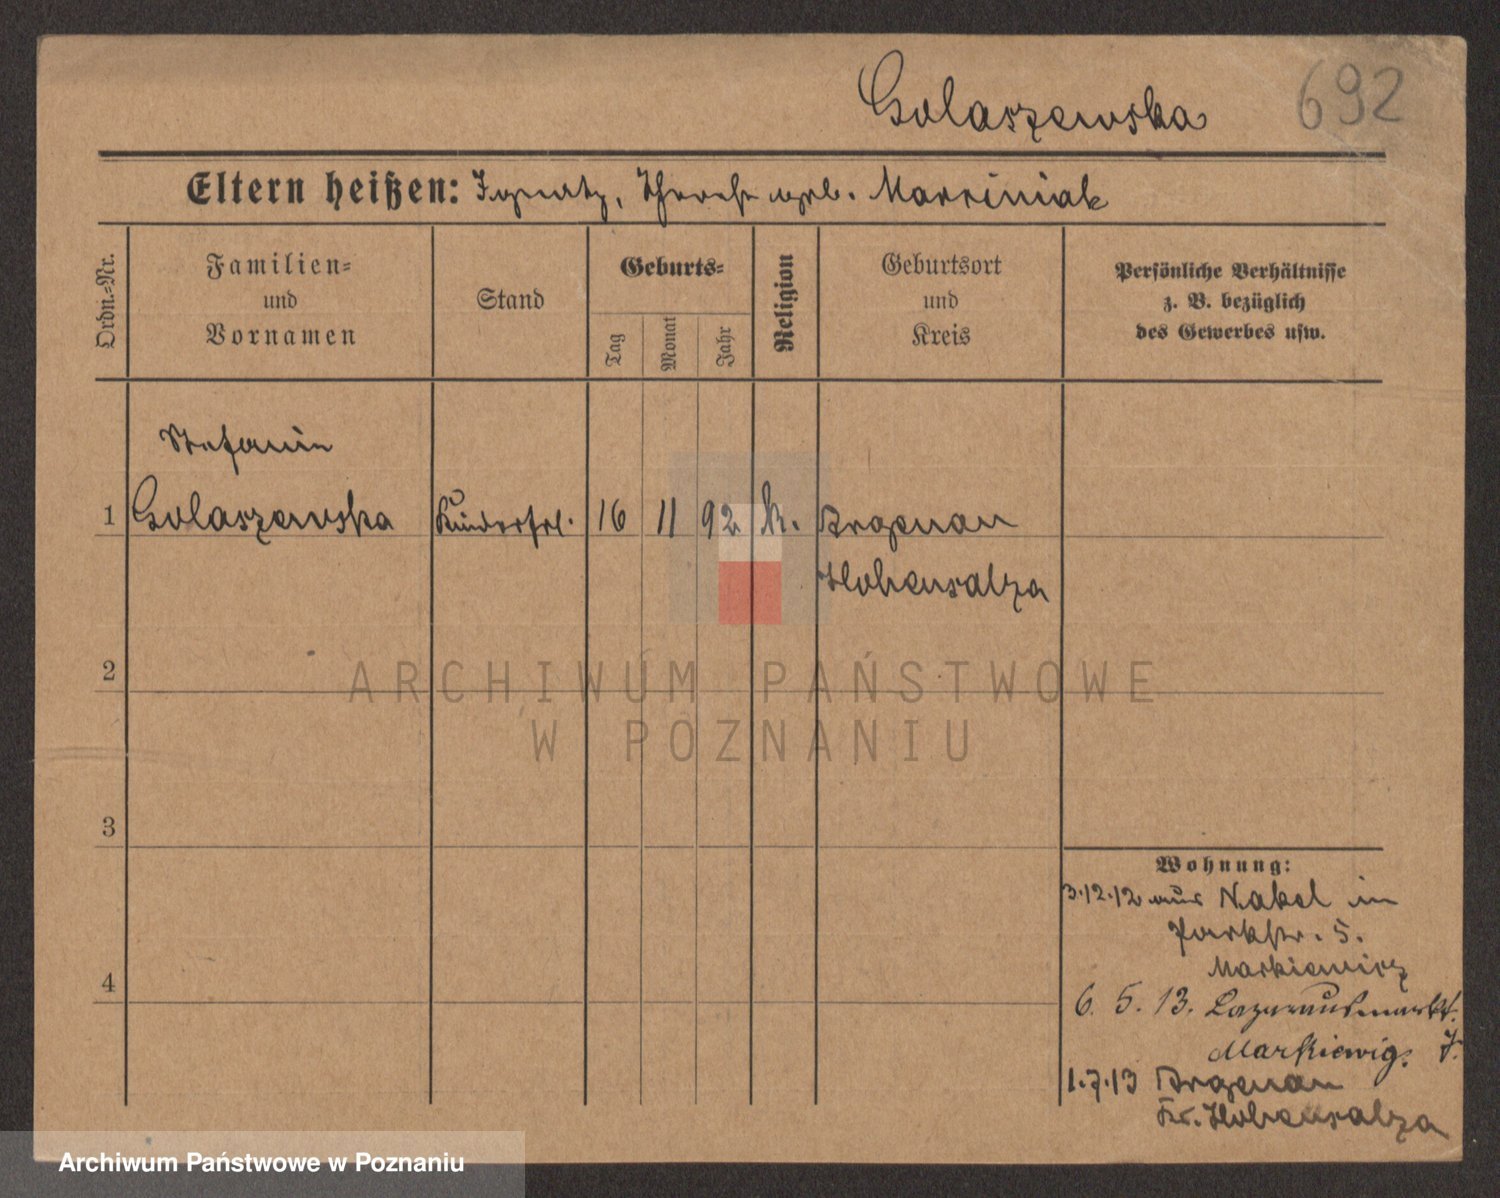 Golaszewska 692
Eltern heißen: Ignatz, Therese geb. Marciniak
Ordn.-Nr.
Familien-
und
Vornamen
Stand
Geburts-
Tag
Monat
Jahr
Religion
Geburtsort
und
Kreis
Persönliche Verhältnisse
z. B. bezüglich
des Gewerbes usw.
Stefanie
1 Golaszewska Kinderfrl. 16 11 92 k. Argenau
Hohensalza
2
ARCHIWUM PAŃSTWOWE
W POZNANIU
3
Wohnung:
3.12.12 aus Nakel in
Parkstr. 5.
Markiewicz
4
6. 5. 13. Lazarusmarkt.
Markiewicz. 7.
1.7.13 Argenau
Kr. Hohensalza
Archiwum Państwowe w Poznaniu